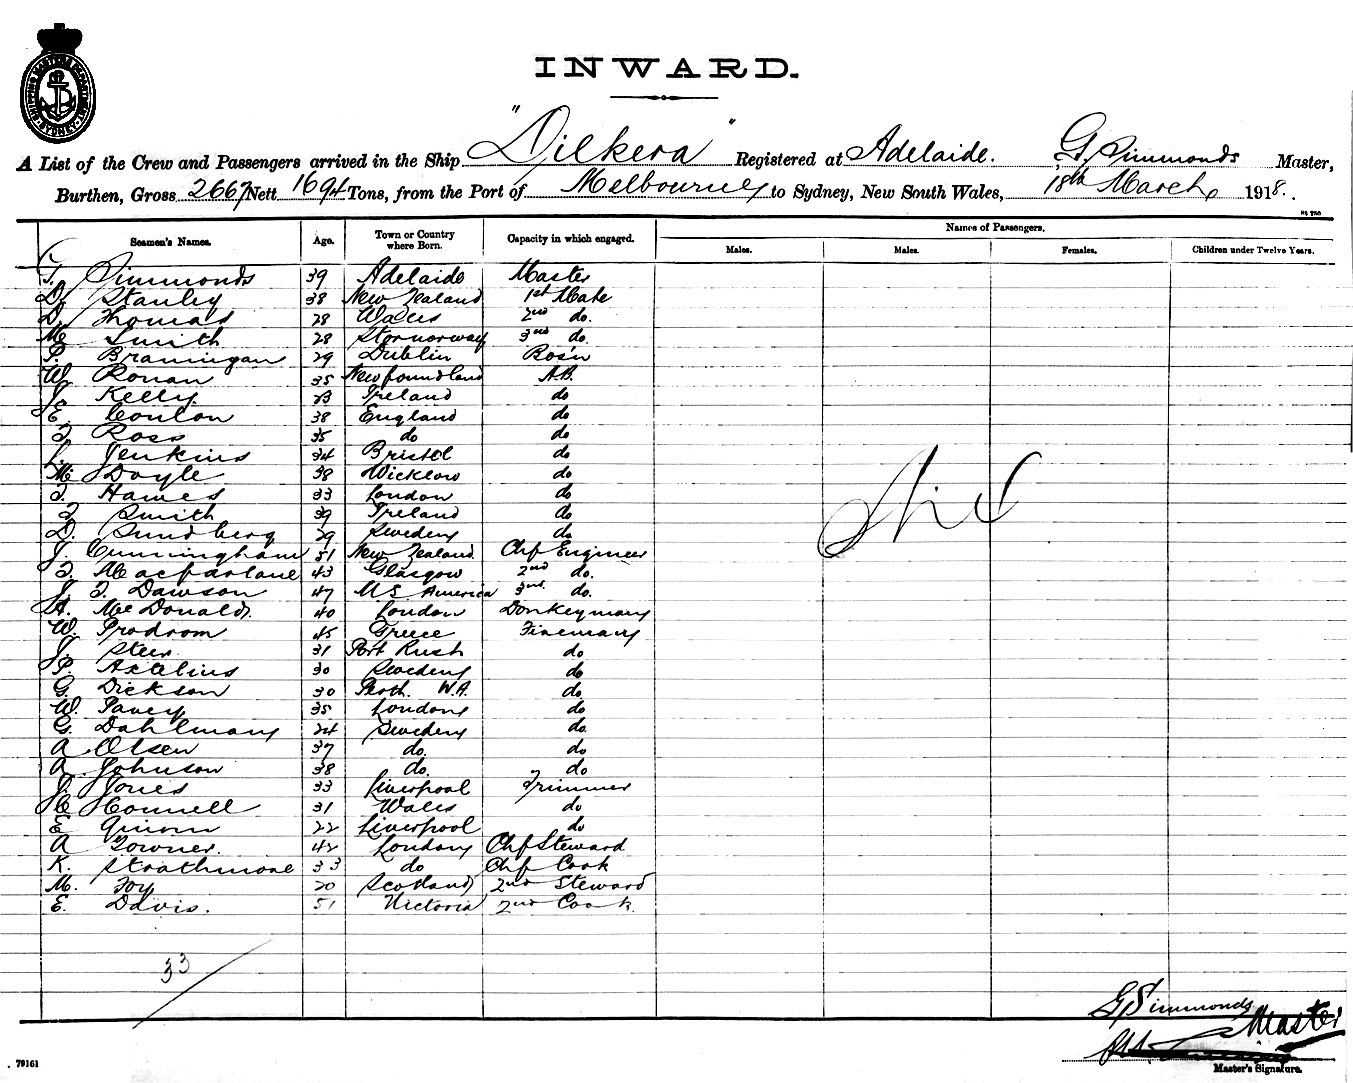 SHIPPING MASTERS DEPARTMENT SYDNEY
INWARD.
A List of the Crew and Passengers arrived in the Ship "Dilkera" Registered at Adelaide. G. Simmonds Master,
Burthen, Gross 2667 Nett 1694 Tons, from the Port of Melbourne to Sydney, New South Wales, 18th March 1918.
Seamen's Names. Age. Town or Country where Born. Capacity in which engaged. Names of Passengers.
Males. Males. Females. Children under Twelve Years.
G. Simmonds 39 Adelaide Master
D. Stanley 38 New Zealand 1st Mate
D. Thomas 28 Wales 2nd do.
M. Smith 28 Stornorway 3rd do.
P. Brannigan 29 Dublin Bos'n
W. Ronan 35 Newfoundland A.B.
J. Kelly 23 Ireland do
E. Coulon 38 England do
T. Ross 35 do do
L. Jenkins 34 Bristol do
M. Doyle 38 Wicklow do
T. Hawes 33 London do
T. Smith 39 Ireland do
D. Sundberg 29 Sweden do
J. Cunningham 51 New Zealand Chf Engineer
T. Macfarlane 43 Glasgow 2nd do.
J. T. Dawson 47 U S America 3rd do.
A. McDonald 40 London Donkeyman
W. Prodrom 45 Greece Fireman
J. Steer 31 Port Rush do
P. Axtelius 30 Sweden do
G. Dickson 30 Perth. W.A. do
W. Pavey 35 London do
G. Dahlman 24 Sweden do
A Olsen 37 do. do
A Johnson 38 do. do
J. Jones 33 Liverpool Trimmer
C Connell 31 Wales do
E Quinn 22 Liverpool do
A Towner. 42 London Chf Steward
K. Strathmore 33 do Chf Cook
M. Foy 20 Scotland 2nd Steward
E. Davis. 51 Victoria 2nd Cook.
Nil
33
G Simmonds
Master
Master's Signature.
79161